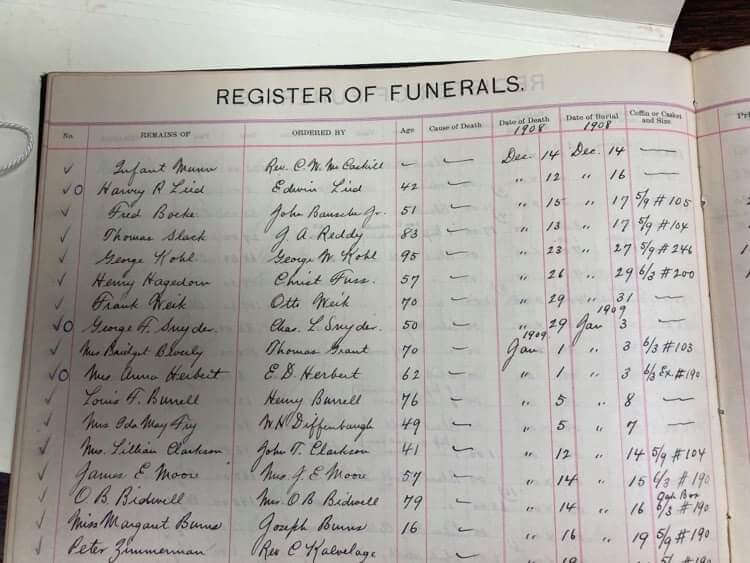 REGISTER OF FUNERALS.
No. REMAINS OF ORDERED BY Age Cause of Death Date of Death Date of Burial Coffin or Casket and Size Pri
1908 1908
✓ Infant Munn Rev. C. W. McCaskill — — Dec. 14 Dec. 14 —
✓ O Harvy R Lied Edwin Lied 42 — " 12 " 16 —
✓ Fred Bocke John Jr. 51 — " 15 " 17 5/9 #105
✓ Thomas Slack J. A. Reddy 83 — " 13 " 17 5/9 #104
✓ George Kohl George W. Kohl 95 — " 23 " 27 5/9 #246
✓ Henry Hagedorn Christ Fuss. 57 — " 26 " 29 6/3 #200
✓ Frank Weik Otto Weik 70 — " 29 " 31 —
1909
✓ O George F. Snyder. Chas. L. Snyder. 50 — " 29 Jan 3 —
1909
✓ Mrs Bridget Beverly Thomas Grant 70 — Jan 1 " 3 6/3 #103
✓ O Mrs. Anna Herbert E. D. Herbert 62 — " 1 " 3 6/3 Ex #190
✓ Louis F. Burrell Henry Burrell 76 — " 5 " 8 —
✓ Mrs Ida May Fry W. H. Diffenbaugh 49 — " 5 " 7 —
✓ Mrs. Lillian Clarkson John T. Clarkson 41 — " 12 " 14 5/9 #104
✓ James E. Moore Mrs. J. E. Moore 57 — " 14 " 15 6/3 #190
Box
✓ O. B. Bidwell Mrs. O. B. Bidwell 79 — " 14 " 16 6/3 #190
✓ Miss Margaret Burns Joseph Burns 16 — " 16 " 19 5/9 #190
✓ Peter Zimmerman Rev C Kalvelage — #190